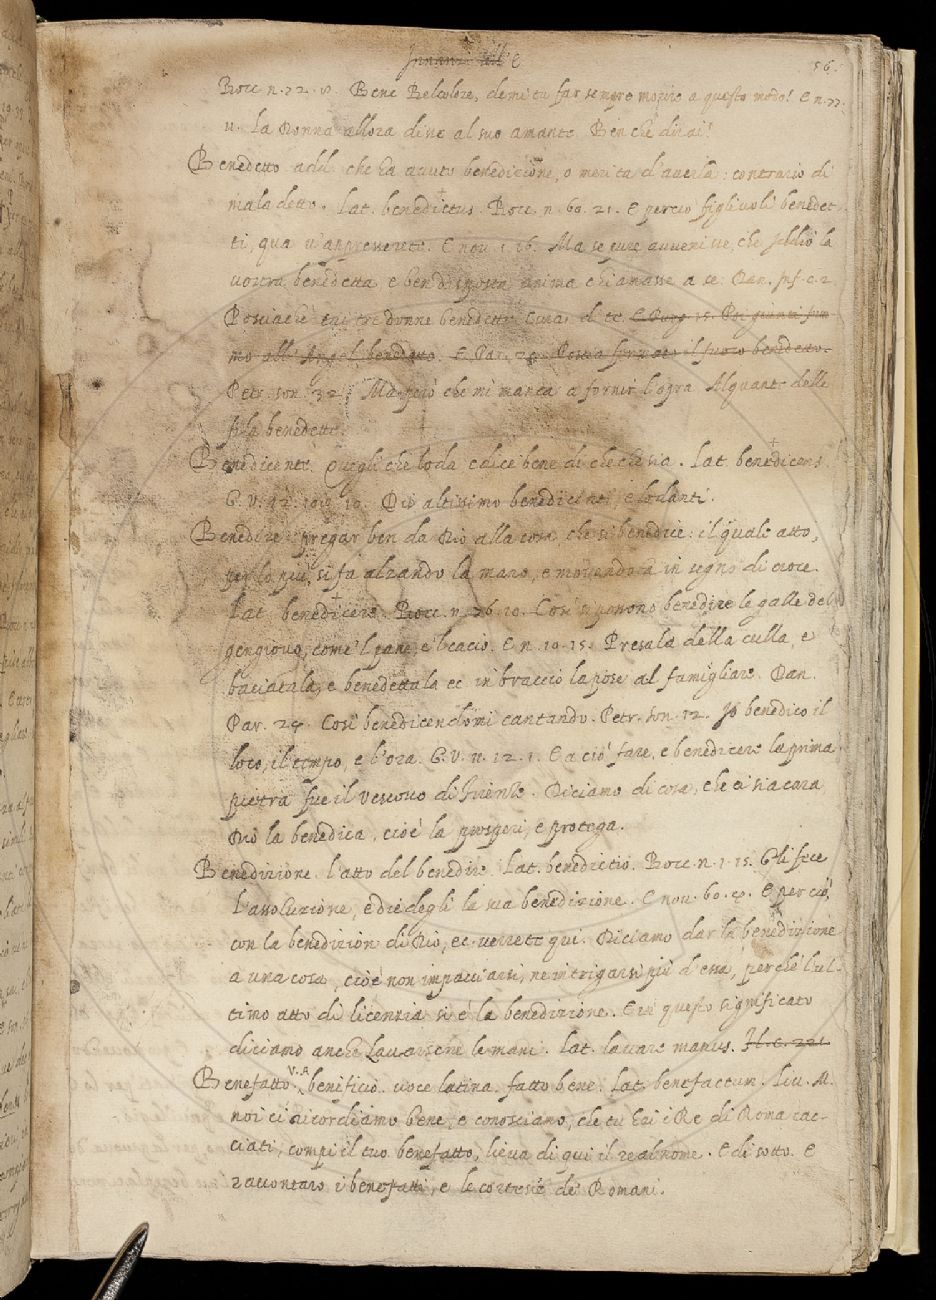 56.
Bocc. n. 72. Bene Belcolore, demi tu far sempre morire a questo modo! E n. 77.
11. La Donna allora disse al suo amante. Ben che dirai!
Benedetto add. che ha auuto benedizione, o merita d'auerla: contrario di
maladetto. Lat. benedictus. Bocc. n. 60. 21. E perciò figliuoli benedet-
ti, qua v'appresserete. E nou. 1. 16. Ma se pure auuenisse, che Iddio la
uostra benedetta e ben disposta anima chiamasse a se. Dan. Inf. c. 2
Posciache tai tre donne benedette Curan di te. E Purg. 15. Poi giunti fum-
mo all' Angel benedetto. E Par. Poscia fermato il fuoco benedetto.
Petr. son. 32. Ma però che mi manca a fornir l'opra Alquante delle
fila benedette.
Benedicente. Quegli che loda e dice bene di che che sia. Lat. benedicens
G. V. Dio altissimo benedicenti, e lodanti.
Benedire. pregar ben da Dio alla cosa, che si benedice: il quale atto,
per lo più, si fa alzando la mano, e mouendola in segno di croce.
Lat. benedicere. Bocc. n. 76. 10. Così si possono benedire le galle del
gengiouo, come 'l pane, e 'l cacio. E n. 10. 15. Presala della culla, e
baciatala, e benedettala ec. in braccio la pose al famigliare. Dan.
Par. 24. Così benedicendomi cantando. Petr. son. 12. Io benedico il
loco, il tempo, e l'ora. G. V. 11. 12. 1. E a ciò fare, e benedicere la prima
pietra fue il Vescouo di Firenze. Diciamo di cosa, che ci sia cara,
Dio la benedica, cioè la prosperi, e protega.
Benedizione. l'atto del benedire. Lat. benedictio. Bocc. n. 1. 15. Gli fece
l'assoluzione, e diedegli la sua benedizione. E nou. 60. E perciò,
con la benedizion di Dio, ec. uerrete qui. Diciamo dar la benedizione
a una cosa, cioè non impacciarsi, ne intrigarsi più d'essa, perchè l'ul-
timo atto di licenzia si è la benedizione. E in questo significato
diciamo anche Lauarsene le mani. Lat. lauare manus. Fl. c. 221
Benefatto V. A. benificio. uoce latina. fatto bene. Lat. benefactum. Liu. M.
noi ci ricordiamo bene, e conosciamo, che tu hai i Re di Roma cac-
ciati, compi il tuo benefatto, lieua di qui il real nome. E di sotto. E
raccontaro i benefatti, e le cortesie de' Romani.